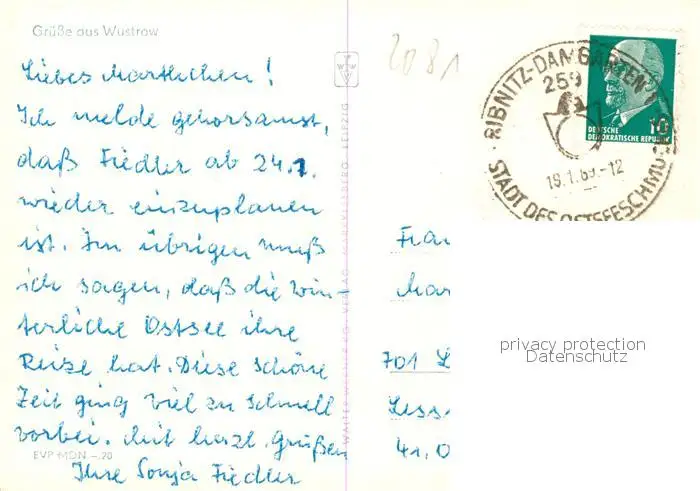 Grüße aus Wustrow
Liebes Marthchen!
Ich melde gehorsamst,
daß Fiedler ab 24.1.
wieder einzuplanen
ist. Im übrigen muß
ich sagen, daß die Win-
terliche Ostsee ihre
Reize hat. Diese schöne
Zeit ging viel zu schnell
vorbei. Mit herzl. Grüßen
EVP MDN –.20
Ihre Sonja Fiedler
2081
RIBNITZ-DAMGARTEN 1
259
19.1.69.-12
STADT DES OSTSEESCHMU
10
DEUTSCHE
DEMOKRATISCHE REPUBLIK
Frau
Mar
701 L
Less
41, 0
privacy protection
Datenschutz